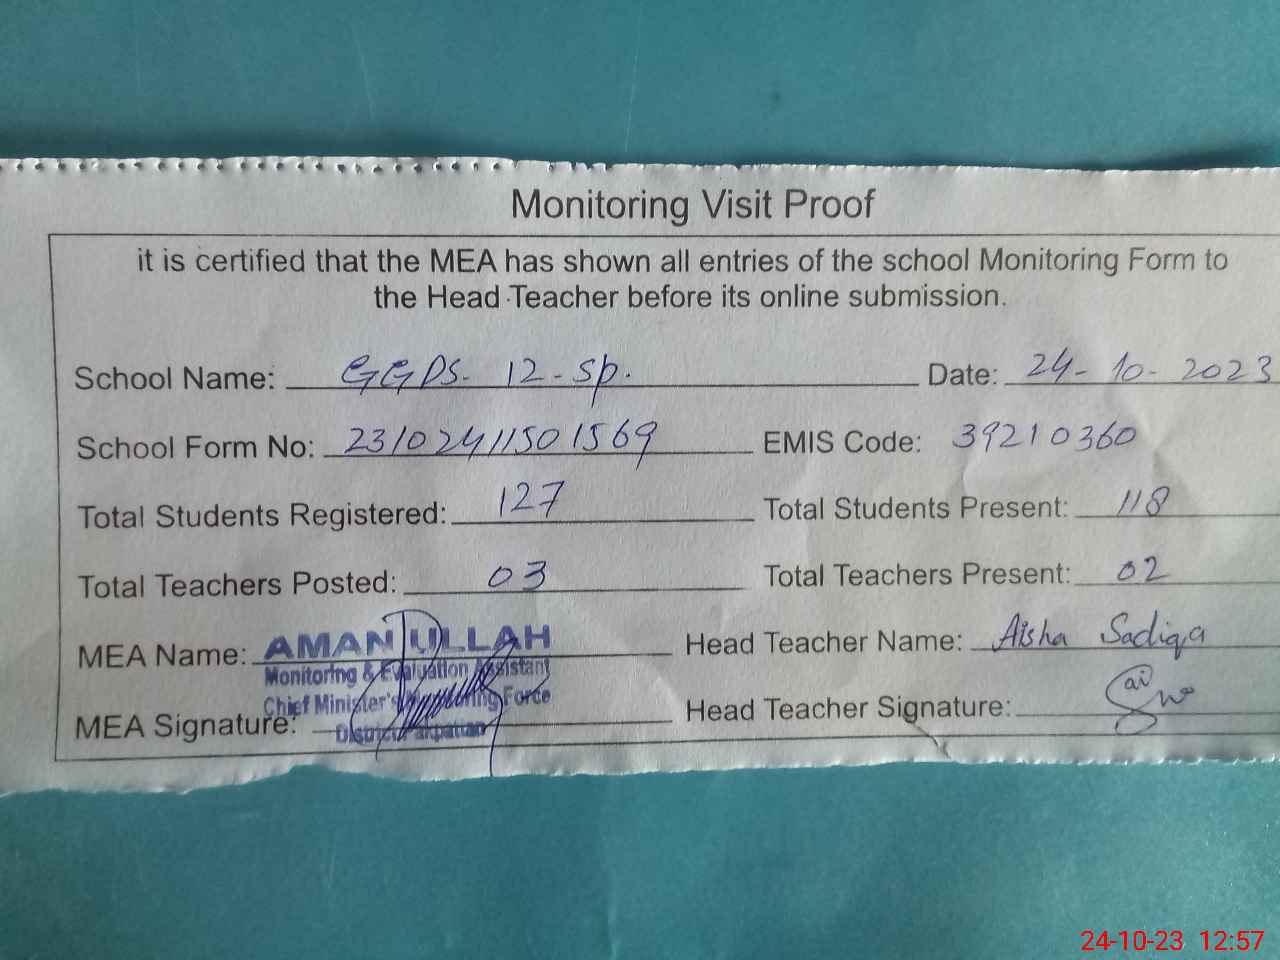 Monitoring Visit Proof
it is certified that the MEA has shown all entries of the school Monitoring Form to
the Head Teacher before its online submission.
School Name: GGPS. 12-SP. Date: 24-10-2023
School Form No: 23102411501569 EMIS Code: 39210360
Total Students Registered: 127 Total Students Present: 118
Total Teachers Posted: 03 Total Teachers Present: 02
MEA Name: AMAN ULLAH Head Teacher Name: Aisha Sadiqa
Monitoring & Evaluation Assistant
Chief Minister's Monitoring Force
MEA Signature: Head Teacher Signature:
District Pakpattan
24-10-23 12:57